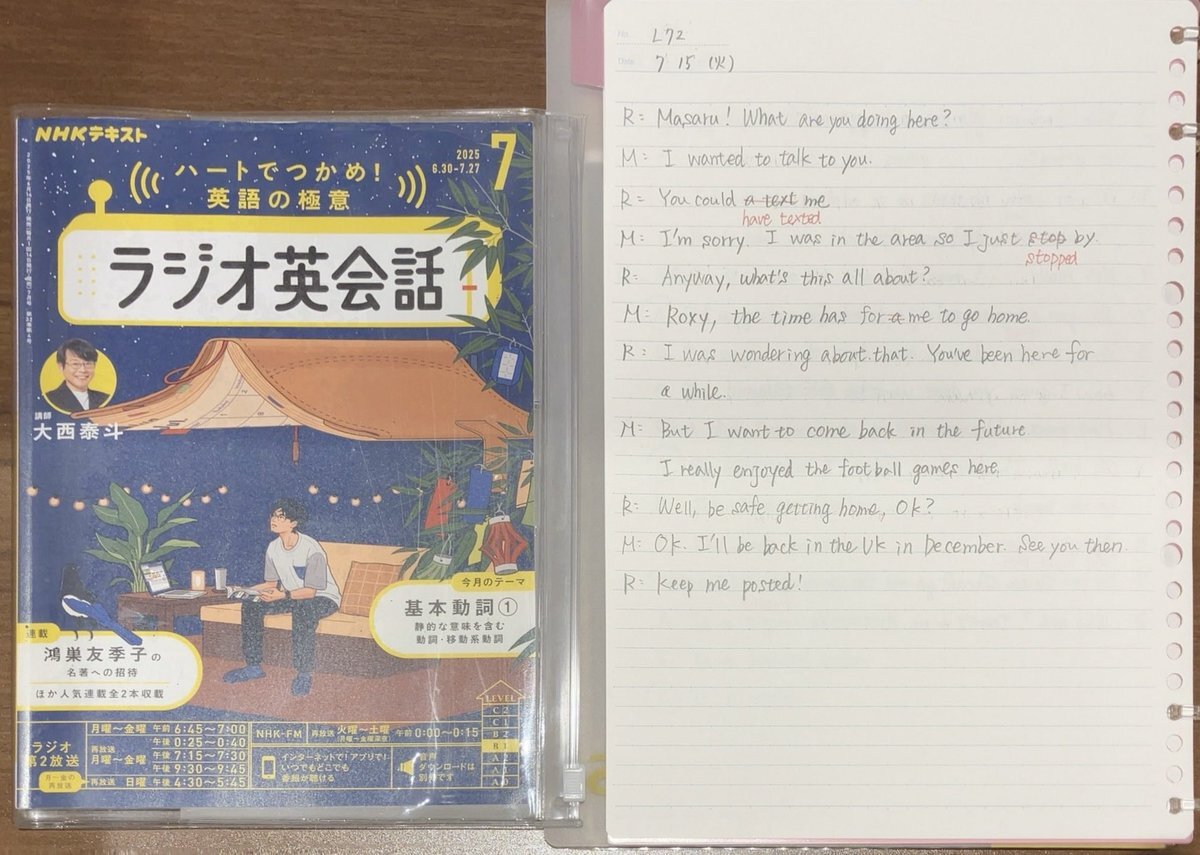 NHKテキスト
2025
6.30-7.27
7
ハートでつかめ!
英語の極意
ラジオ英会話
講師
大西泰斗
今月のテーマ
基本動詞①
静的な意味を含む
動詞・移動系動詞
連載
鴻巣友季子の
名著への招待
ほか人気連載全2本収載
LEVEL
C2
C1
B2
B1
A2
A1
A0
ラジオ
第2放送
月〜金の
再放送
月曜〜金曜 午前 6:45〜7:00
午後 0:25〜0:40
再放送
月曜〜金曜
午後 7:15〜7:30
午後 9:30〜9:45
再放送 日曜 午後 4:30〜5:45
NHK-FM 再放送 火曜〜土曜 午前 0:00〜0:15
月曜〜金曜深夜
インターネットで!アプリで!
いつでもどこでも
番組が聴ける
音声
ダウンロードは
別売です
No. L72
Date 7 15 (火)
R: Masaru! What are you doing here?
M: I wanted to talk to you.
R: You could a text me
have texted
M: I'm sorry. I was in the area so I just stop by.
stopped
R: Anyway, what's this all about?
M: Roxy, the time has for a me to go home.
R: I was wondering about that. You've been here for
a while.
M: But I want to come back in the future.
I really enjoyed the football games here.
R: Well, be safe getting home, Ok?
M: Ok. I'll be back in the UK in December. See you then.
R: Keep me posted!